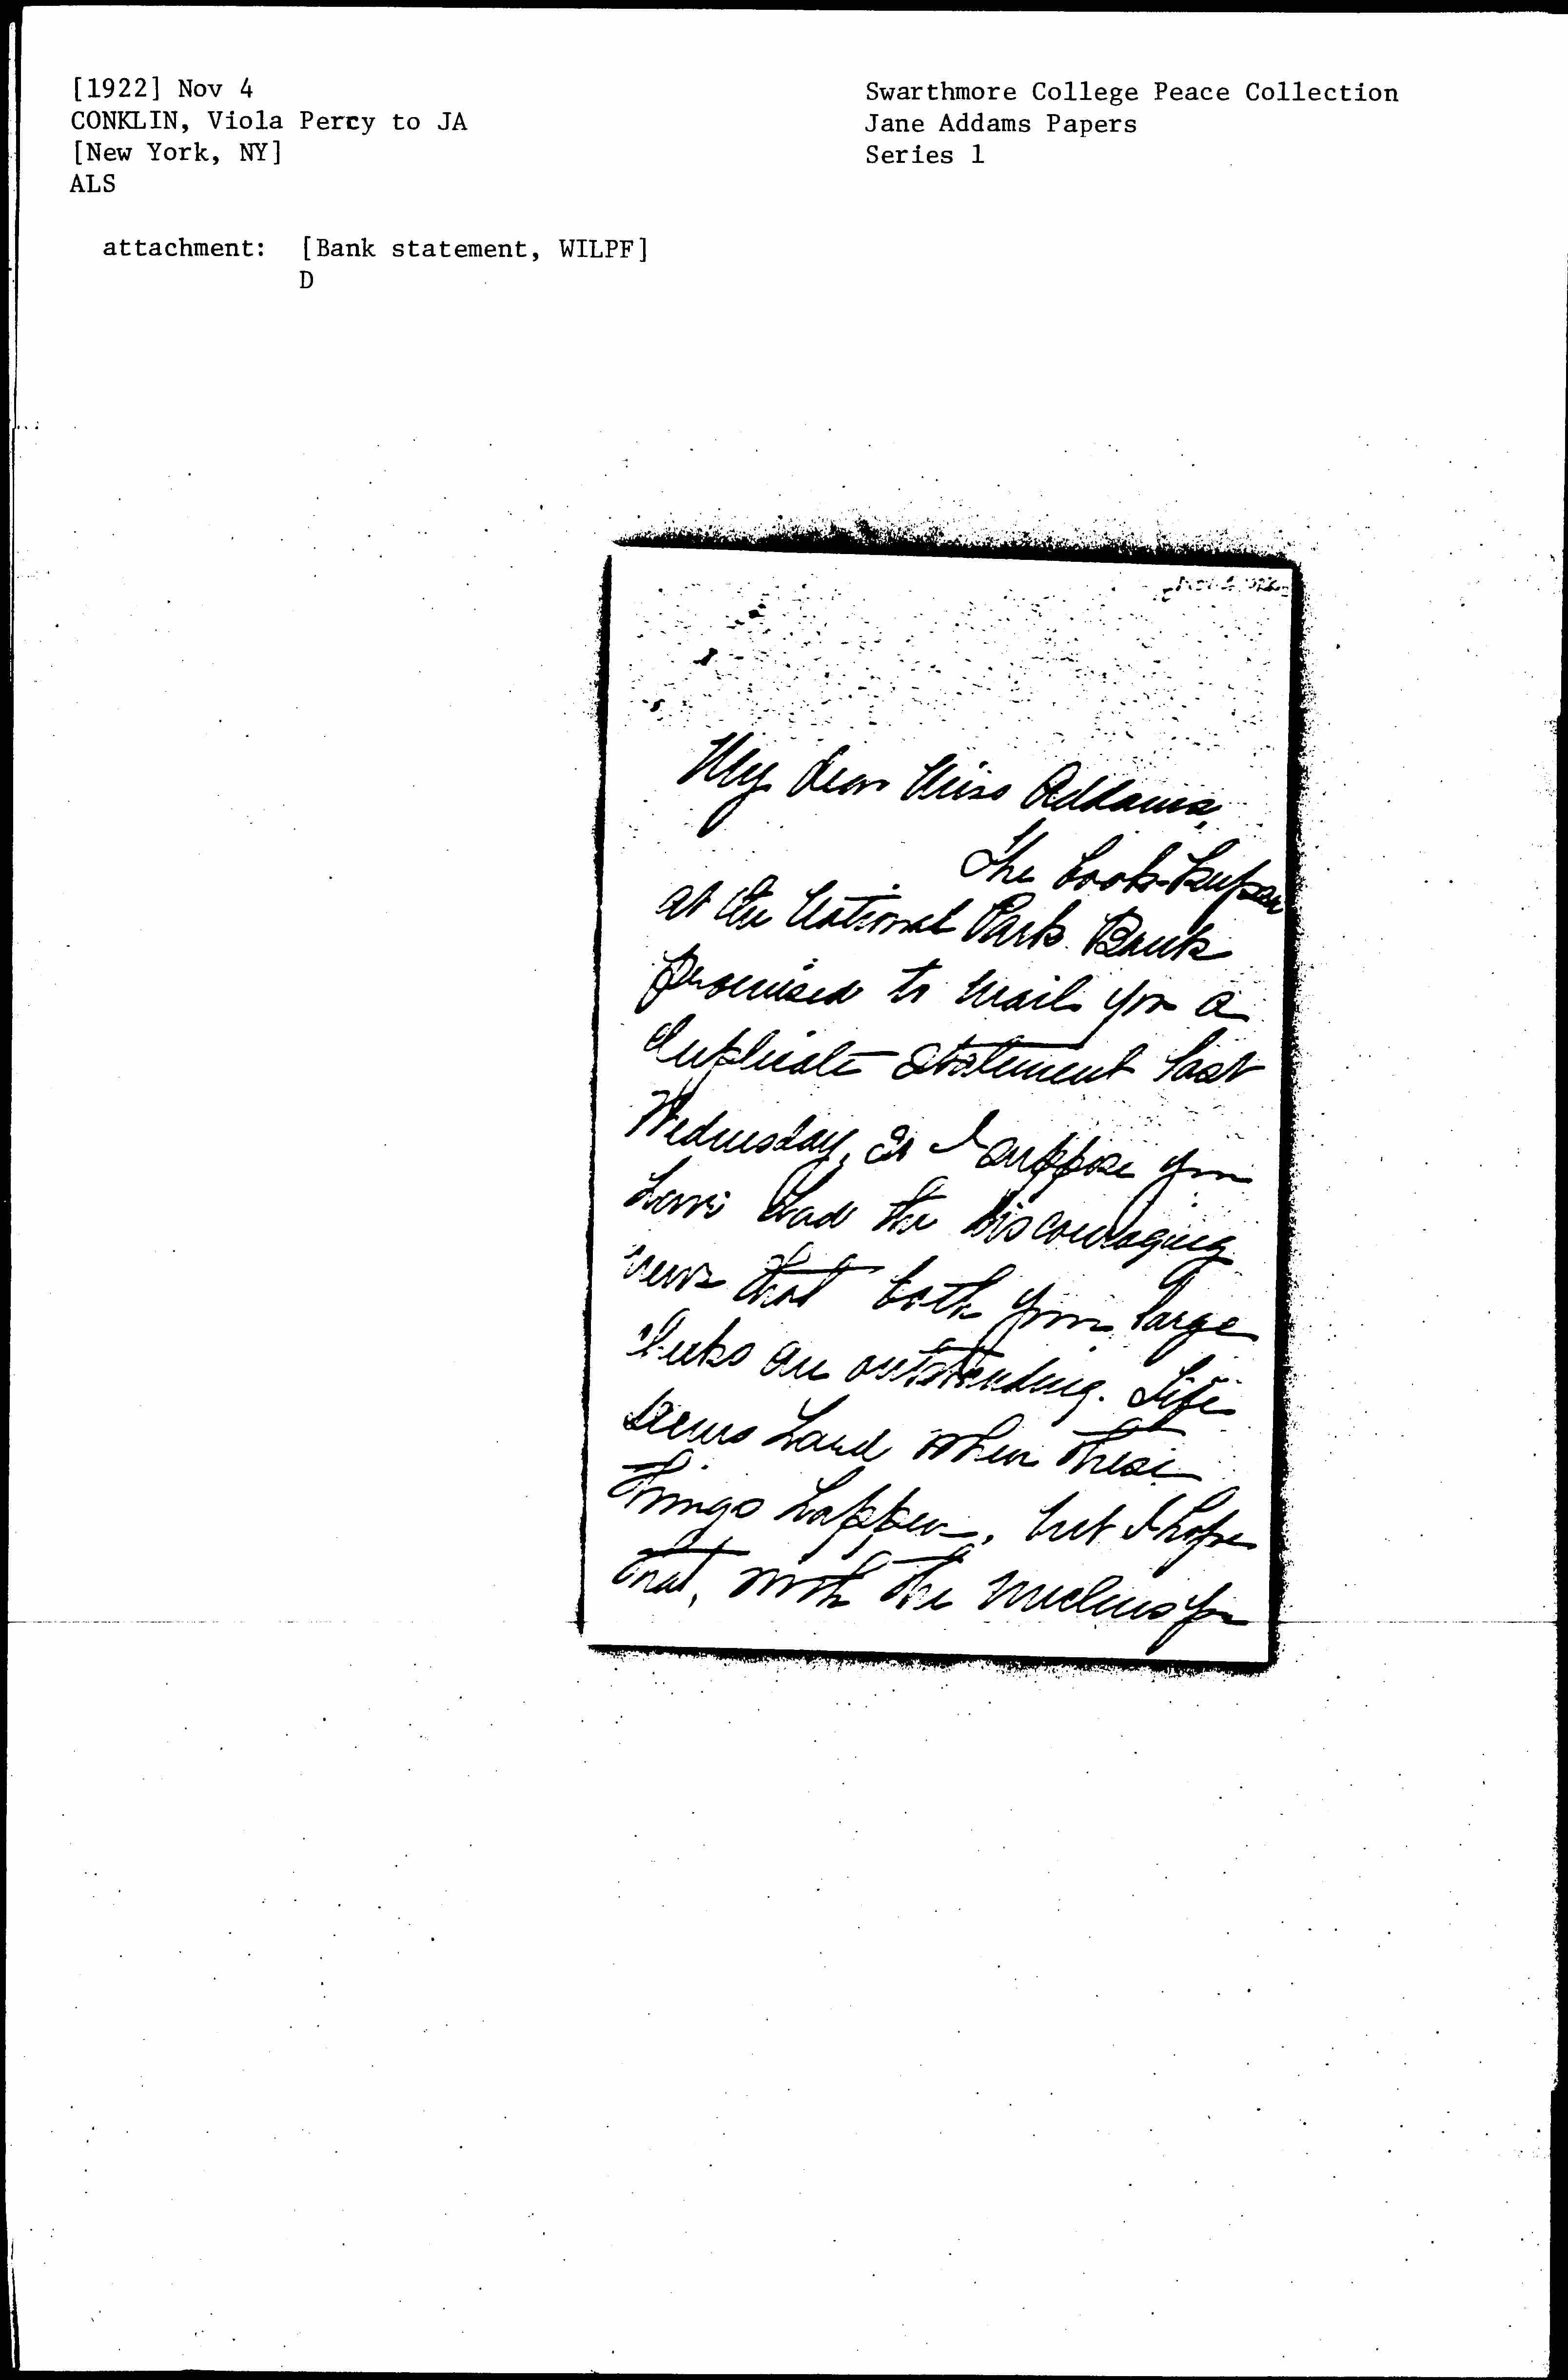 [1922] Nov 4
CONKLIN, Viola Percy to JA
[New York, NY]
ALS
attachment: [Bank statement, WILPF]
D
Swarthmore College Peace Collection
Jane Addams Papers
Series 1
My dear Miss Addams,
The book-keeper
at the National Park Bank
promised to mail you a
duplicate statement last
Wednesday, so I suppose you
have had the discouraging
news that both your large
checks are outstanding. Life
seems hard when these
things happen, but I hope
that, with the nucleus you